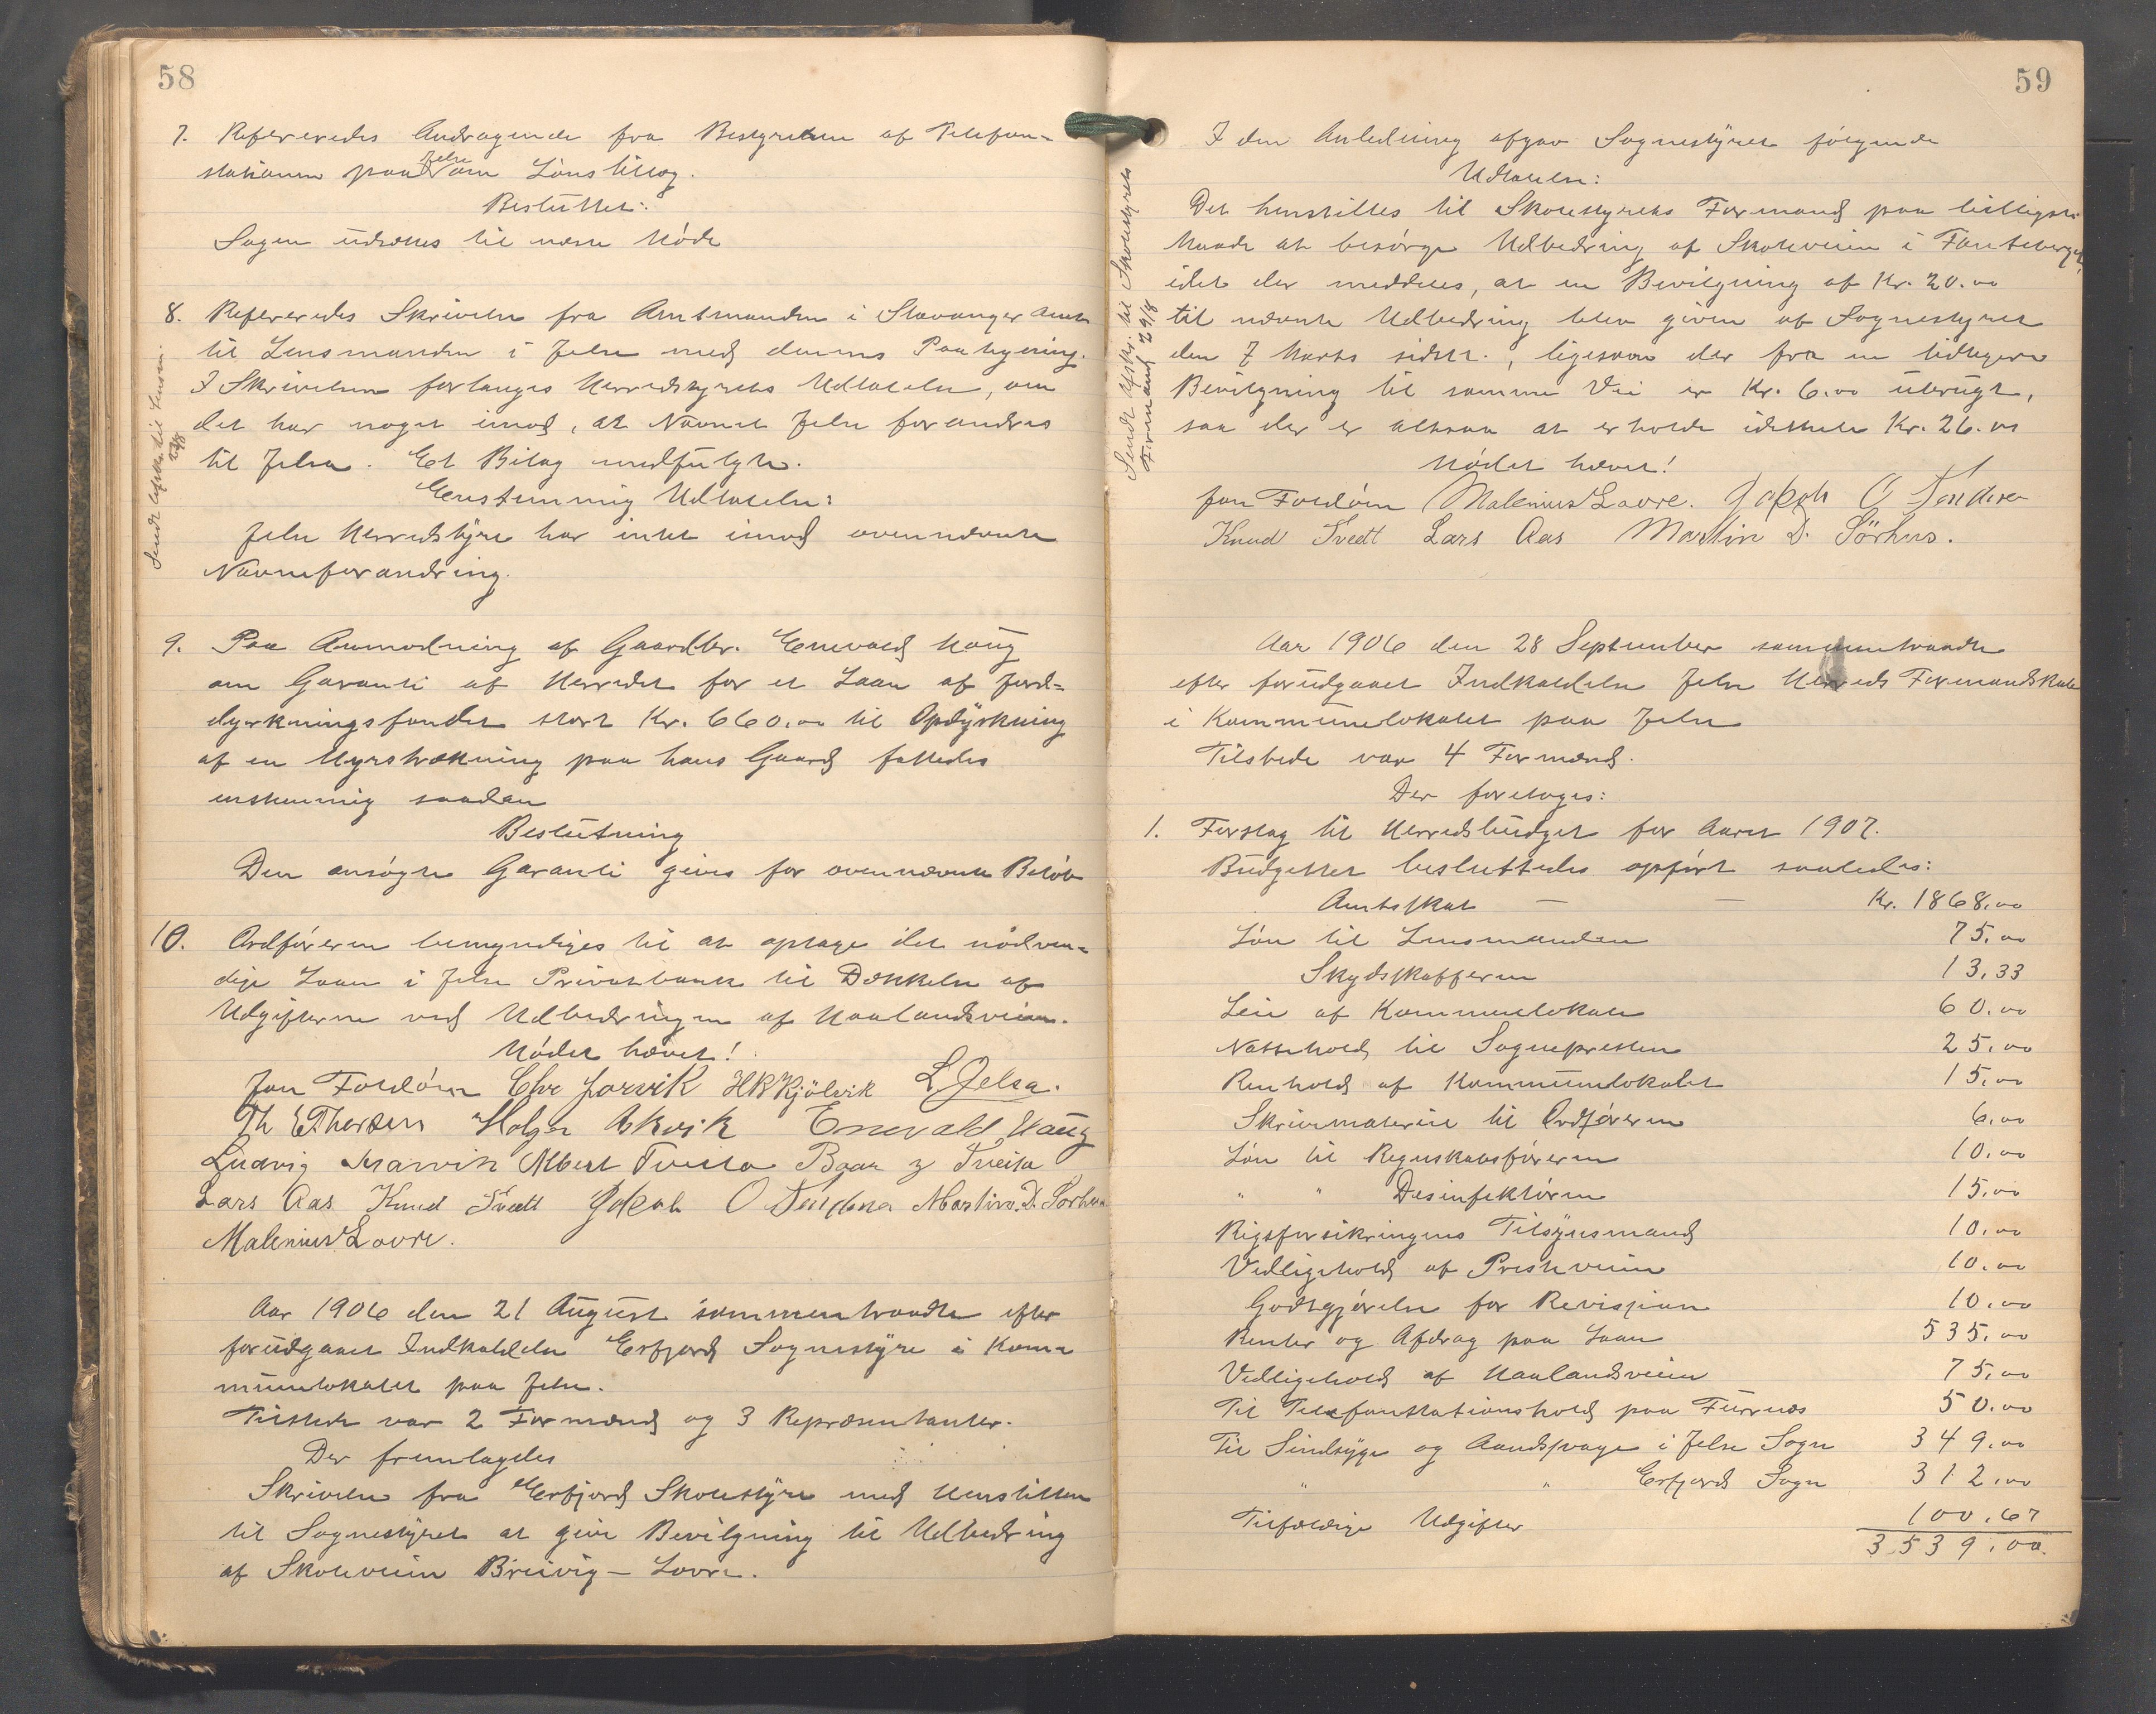 58
7. Refereredes Andragende fra Bestyreren af Telefon-
stationen paa Jelse om Lønstillæg.
Besluttet:
Sagen udsættes til næste Møde
8. Refereredes Skrivelse fra Amtmanden i Stavanger Amt
til Lensmanden i Jelse med dennes Paategning.
I Skrivelsen forlanges Herredsstyrets Udtalelse, om
det har noget imod, at Navnet Jelse forandres
til Jelsa. Et Bilag medfulgte.
Enstemmig Udtalelse:
Jelse Herredsstyre har intet imod ovennævnte
Navneforandring.
Sendt Afskr. til Lensm.
9. Paa Anmodning af Gaardbr. Enevald Haug
om Garanti af Herredet for et Laan af Jord-
dyrkningsfondet stort Kr. 660.00 til Opdyrkning
af en Myrstrækning paa hans Gaard fattedes
enstemmig saadan
Beslutning
Den ansøgte Garanti gives for ovennævnte Beløb
10. Ordføreren bemyndiges til at optage det nødven-
dige Laan i Jelse Privatbank til Dækkelse af
Udgifterne ved Udbedringen af Haalandsveien.
Mødet hævet!
Jon Foldöen Chr Jorvik HKKjölvik L Jelsa.
Th EThorsen Holger Askvik Enevald Haug
Ludvig Albert Tveita Baar Tveita
Lars Aas Knud Tvedt Jakob O Tendena Martin D. Sørhus
Malenius Lovre.
Aar 1906 den 21 August sammentraadte efter
forudgaaet Indkaldelse Erfjord Sognestyre i Kom-
munelokalet paa Jelse.
Tilstede var 2 Formænd og 3 Repræsentanter.
Der fremlagdes
Skrivelse fra Erfjord Skolestyre med Henstillen
til Sognestyret at give Bevilgning til Udbedring
af Skoleveien Breivig – Lovre.
59
I den Anledning afgav Sognestyret følgende
Udtalelse:
Det henstilles til Skolestyrets Formand paa billigste
Maade at besørge Udbedring af Skoleveien i Fanteberget,
idet der meddeles, at en Bevilgning af Kr. 20.00
til nævnte Udbedring blev given af Sognestyret
den 7 Marts sidstl., ligesom der fra en tidligere
Bevilgning til samme Vei er Kr. 6.00 ubrugt,
saa der er altsaa at erholde idethele Kr. 26.00
Sendt Afskr. til Skolestyrets
Formand 29/8
Mødet hævet!
Jon Foldöen Malenius Lovre. Jakob O Tendena
Knud Tvedt Lars Aas Martin D. Sörhus.
Aar 1906 den 28 September sammentraadte
efter forudgaaet Indkaldelse Jelse Herreds Formandskab
i Kommunelokalet paa Jelse
Tilstede var 4 Formænd.
Der foretoges:
1. Forslag til Herredsbudget for Aaret 1907.
Budgettet besluttedes opført saaledes:
Amtsskat — — Kr. 1868.00
Løn til Lensmanden 75.00
Skydsskafferen 13.33
Leie af Kommunelokale 60.00
Nattehold til Sognepresten 25.00
Renhold af Kommunelokalet 15.00
Skrivmateriel til Ordføreren 6.00
Løn til Regnskabsføreren 10.00
" " Desinfektøren 15.00
Rigsforsikringens Tilsynsmand 10.00
Vedligehold af Presteveien 10.00
Godtgjørelse for Revisjon 10.00
Renter og Afdrag paa Laan 535.00
Vedligehold af Haalandsveien 75.00
Til Telefonstationshold paa Furenæs 50.00
Til Sindsyge og Aandssvage i Jelse Sogn 349.00
" " Erfjord Sogn 312.00
Tilfældige Udgifter 100.67
3539.00.